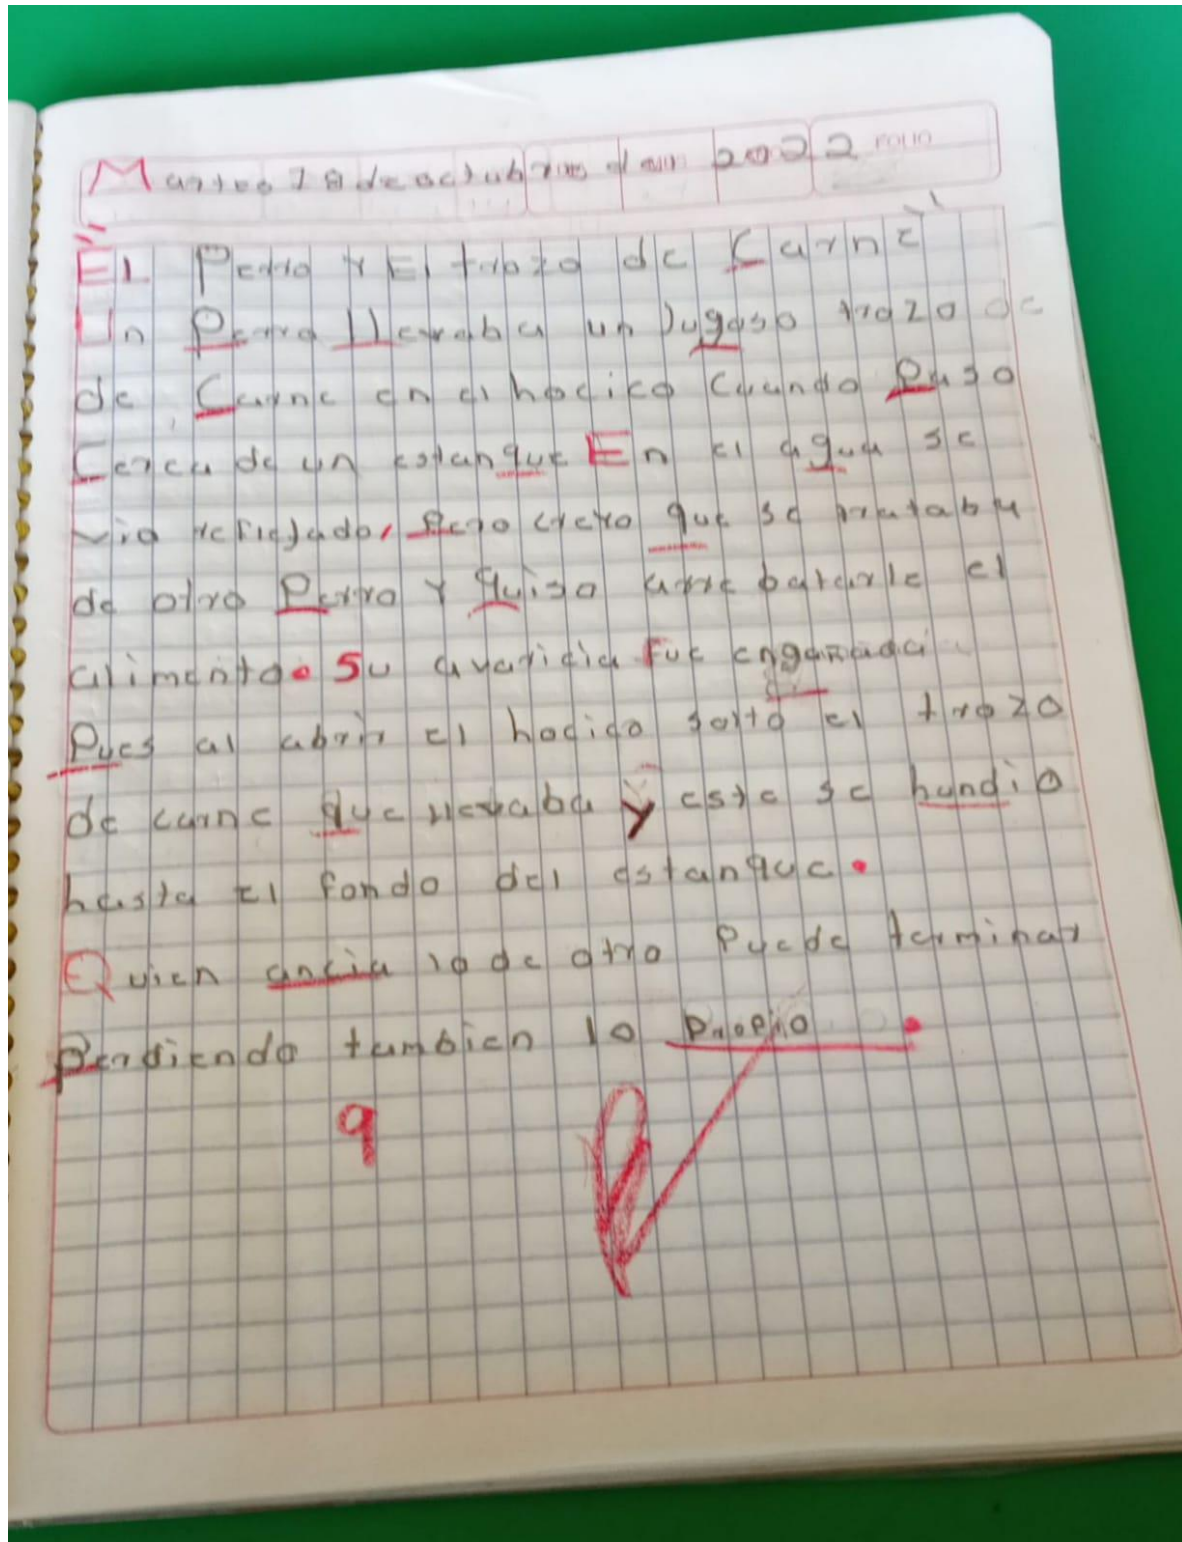 Martes 18 de octubre 2022
"El Perro Y El trozo de Carne"
Un Perro llevaba un Jugoso trozo de
de Carne en el hocico Cuando Paso
Cerca de un estanque En el agua se
vio reflejado, Pero creyo que se trataba
de otro Perro Y quiso arre batarle el
alimento. Su avaricia fue engañada
Pues al abrir el hocico solto el trozo
de carne que llevaba y este se hundio
hasta el fondo del estanque.
Quien ancia lo de otro Puede terminar
Perdiendo tambien lo ProPio.
9